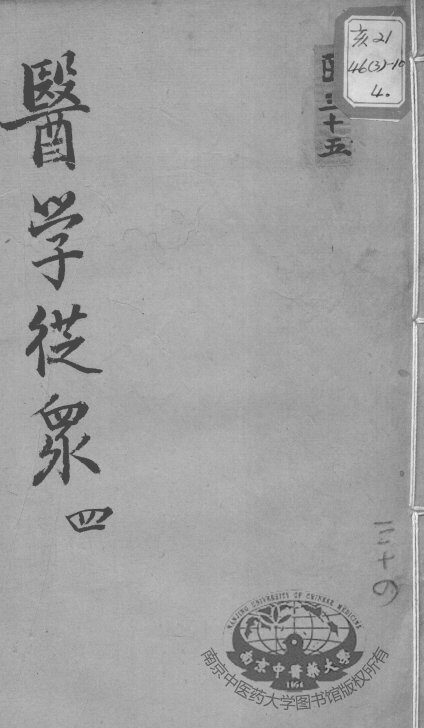 醫学從眾 四
亥21
46(3)-10
4.
三十五
三十
NANJING UNIVERSITY OF CHINESE MEDICINE
南京中醫藥大學
1954
南京中医药大学图书馆版权所有